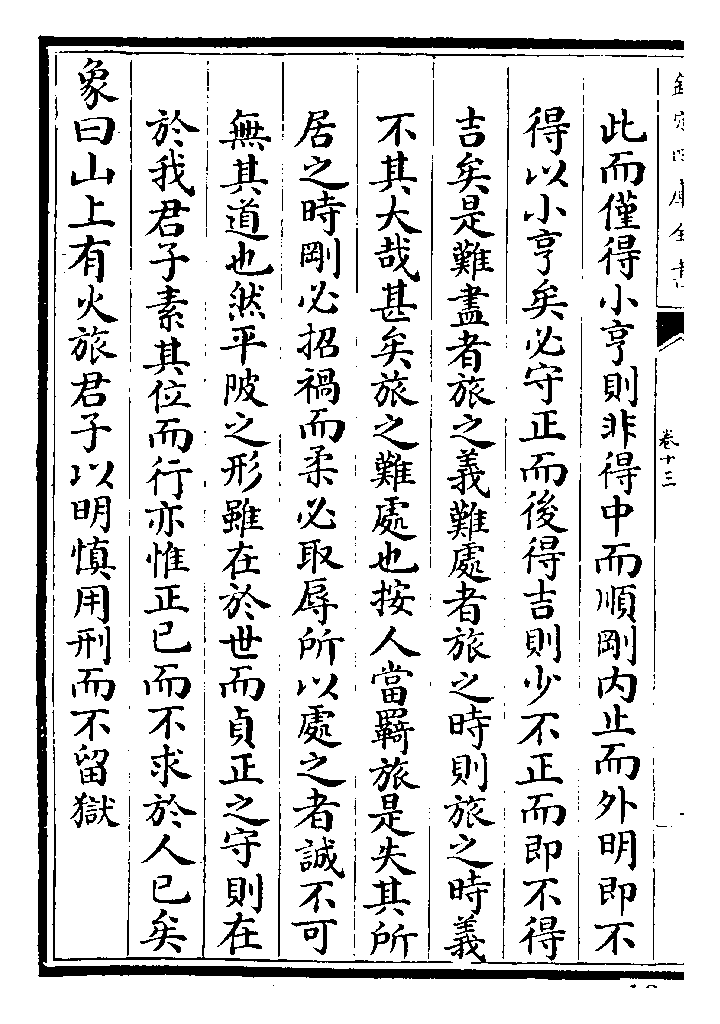 欽定四庫全書
卷十三
此而僅得小亨則非得中而順剛内止而外明即不
得以小亨矣必守正而後得吉則少不正而即不得
吉矣是難盡者旅之義難處者旅之時則旅之時義
不其大哉甚矣旅之難處也按人當羇旅是失其所
居之時剛必招禍而柔必取辱所以處之者誠不可
無其道也然平陂之形雖在於世而貞正之守則在
於我君子素其位而行亦惟正已而不求於人已矣
象曰山上有火旅君子以明慎用刑而不留獄